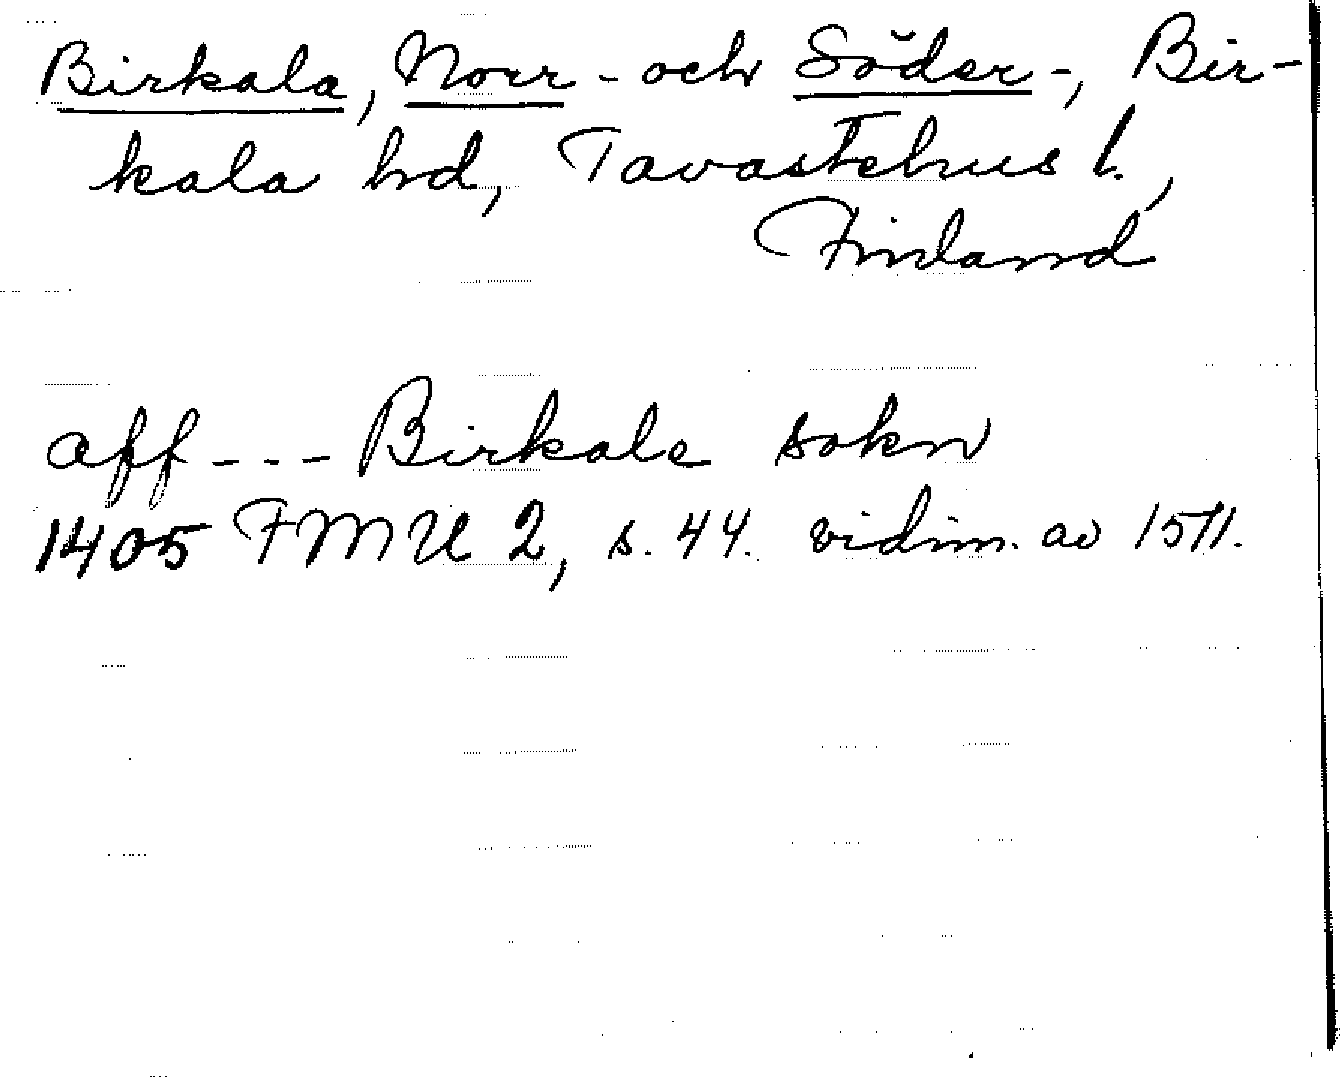 Birkala, Norr- och Söder-, Bir-
kala hd, Tavastehus l.,
Finland
aff --- Birkale sokn
1405 FMU 2, s. 44. vidim. av 1511.